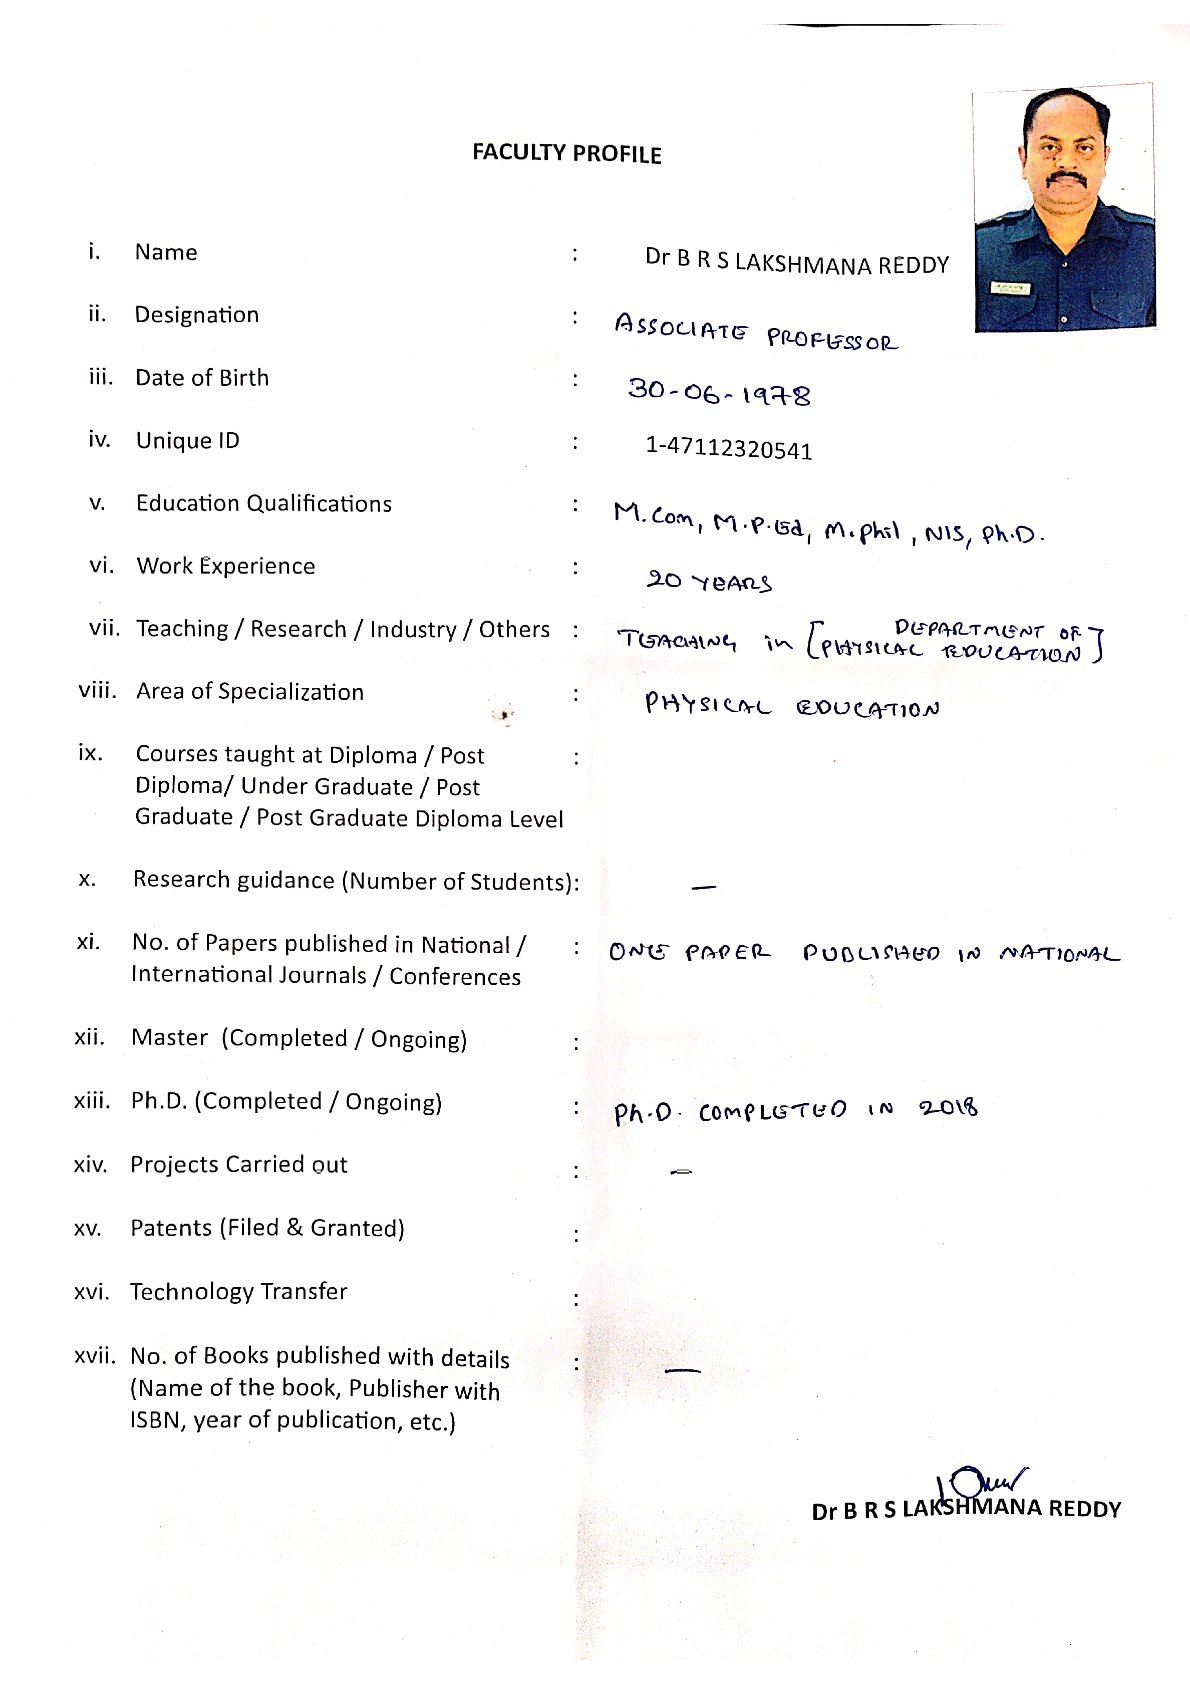 FACULTY PROFILE
i. Name : Dr B R S LAKSHMANA REDDY
ii. Designation : ASSOCIATE PROFESSOR
iii. Date of Birth : 30-06-1978
iv. Unique ID : 1-47112320541
v. Education Qualifications : M.Com, M.P.Ed, M.Phil, NIS, Ph.D.
vi. Work Experience : 20 YEARS
vii. Teaching / Research / Industry / Others : TEACHING in [DEPARTMENT OF
PHYSICAL EDUCATION]
viii. Area of Specialization : PHYSICAL EDUCATION
ix. Courses taught at Diploma / Post :
Diploma/ Under Graduate / Post
Graduate / Post Graduate Diploma Level
x. Research guidance (Number of Students): —
xi. No. of Papers published in National / : ONE PAPER PUBLISHED IN NATIONAL
International Journals / Conferences
xii. Master (Completed / Ongoing) :
xiii. Ph.D. (Completed / Ongoing) : Ph.D. COMPLETED IN 2018
xiv. Projects Carried out : —
xv. Patents (Filed & Granted) :
xvi. Technology Transfer :
xvii. No. of Books published with details : —
(Name of the book, Publisher with
ISBN, year of publication, etc.)
Dr B R S LAKSHMANA REDDY